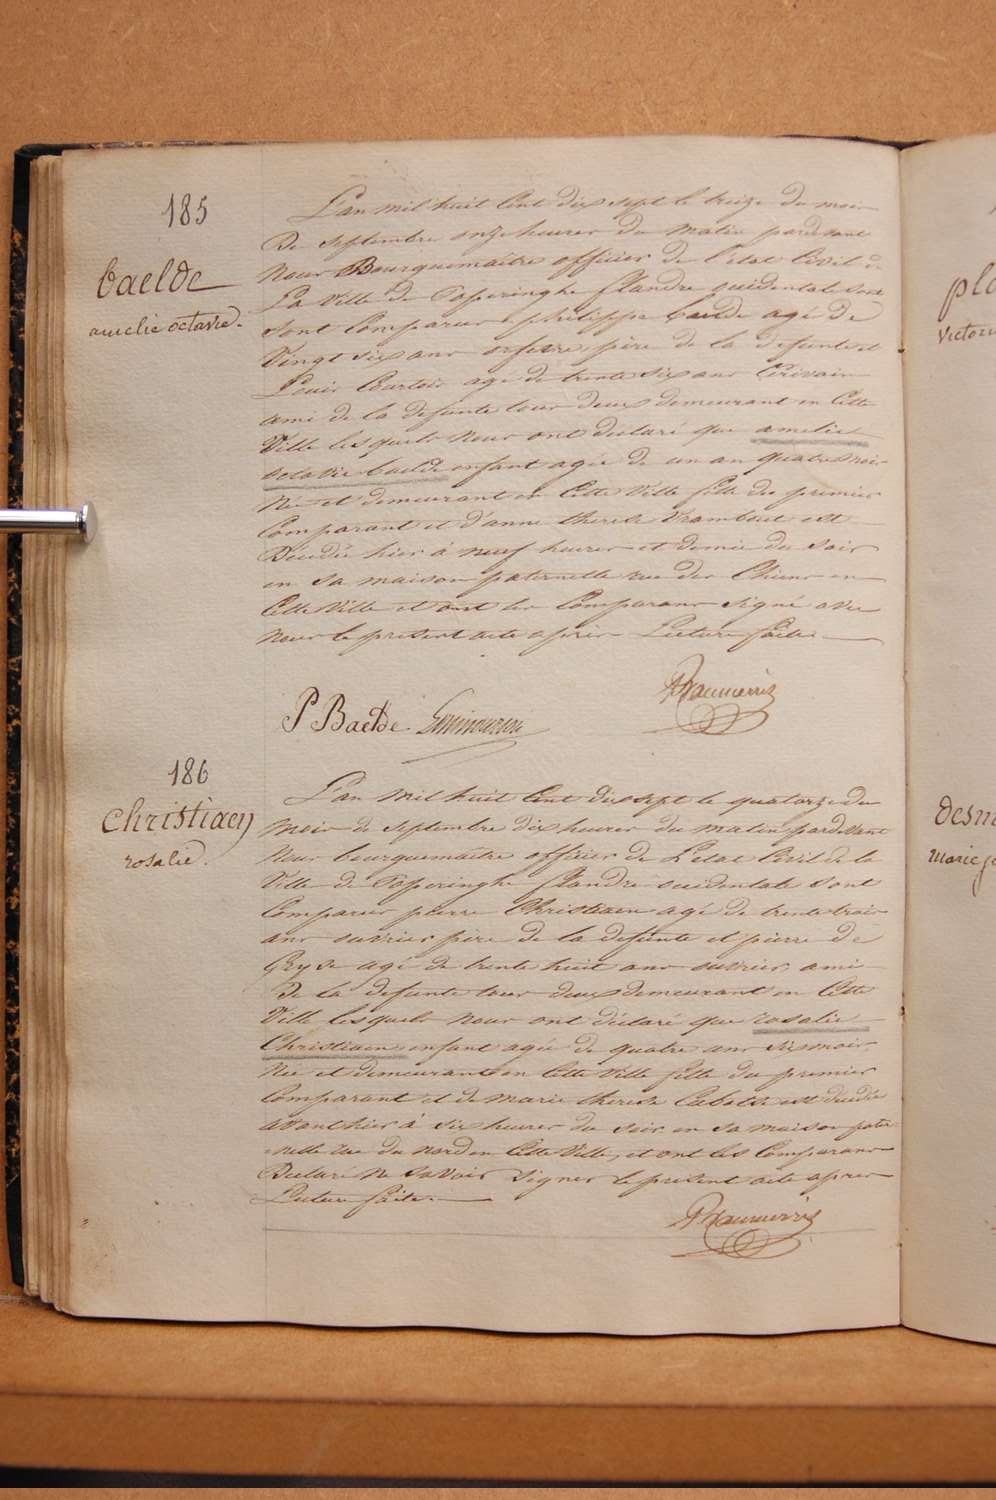 185
baelde
amelie octavie.
L'an mil huit Cent dix sept le treize du mois
De Septembre onze heures du matin pardevant
Nous Bourguemaître officier de l'état Civil de
La Ville de Poperinghe flandre occidentale sont
Comparus philippe baelde agé de
Vingt six ans orfevre, père de la defunte et
Louis agé de trente six ans Ecrivain
ami de la defunte tous deux demeurant en Cette
Ville lesquels nous ont déclaré que amelie
octavie baelde enfant agée de un an quatre mois
Née et demeurant en Cette Ville fille du premier
Comparant et d'anne therese est
Décédée hier à neuf heures et demie du Soir
en Sa maison paternelle rue des Chiens en
Cette Ville et ont les Comparans Signé avec
nous le present acte après Lecture faite.
P Baelde
186
Christiaen
rosalie.
L'an Mil huit Cent dix sept le quatorze du
Mois de Septembre dix heures du matin pardevant
Nous bourguemaître officier de L'etat Civil de la
Ville de Poperinghe flandre occidentale Sont
Comparus pierre Christiaen agé de trente trois
ans ouvrier père de la defunte et pierre de
Gryse agé de trente huit ans ouvrier, ami
De la defunte tous deux demeurant en Cette
Ville lesquels nous ont déclaré que rosalie
Christiaen enfant agée de quatre ans Six mois
Née et demeurant en Cette Ville fille du premier
Comparant et de marie therese est décédée
avant hier à Six heures du Soir en sa maison pater
nelle rue du nord en Cette Ville, et ont les Comparans
Déclaré Ne Savoir Signer le present acte après
Lecture faite.
Victor
desm
Marie